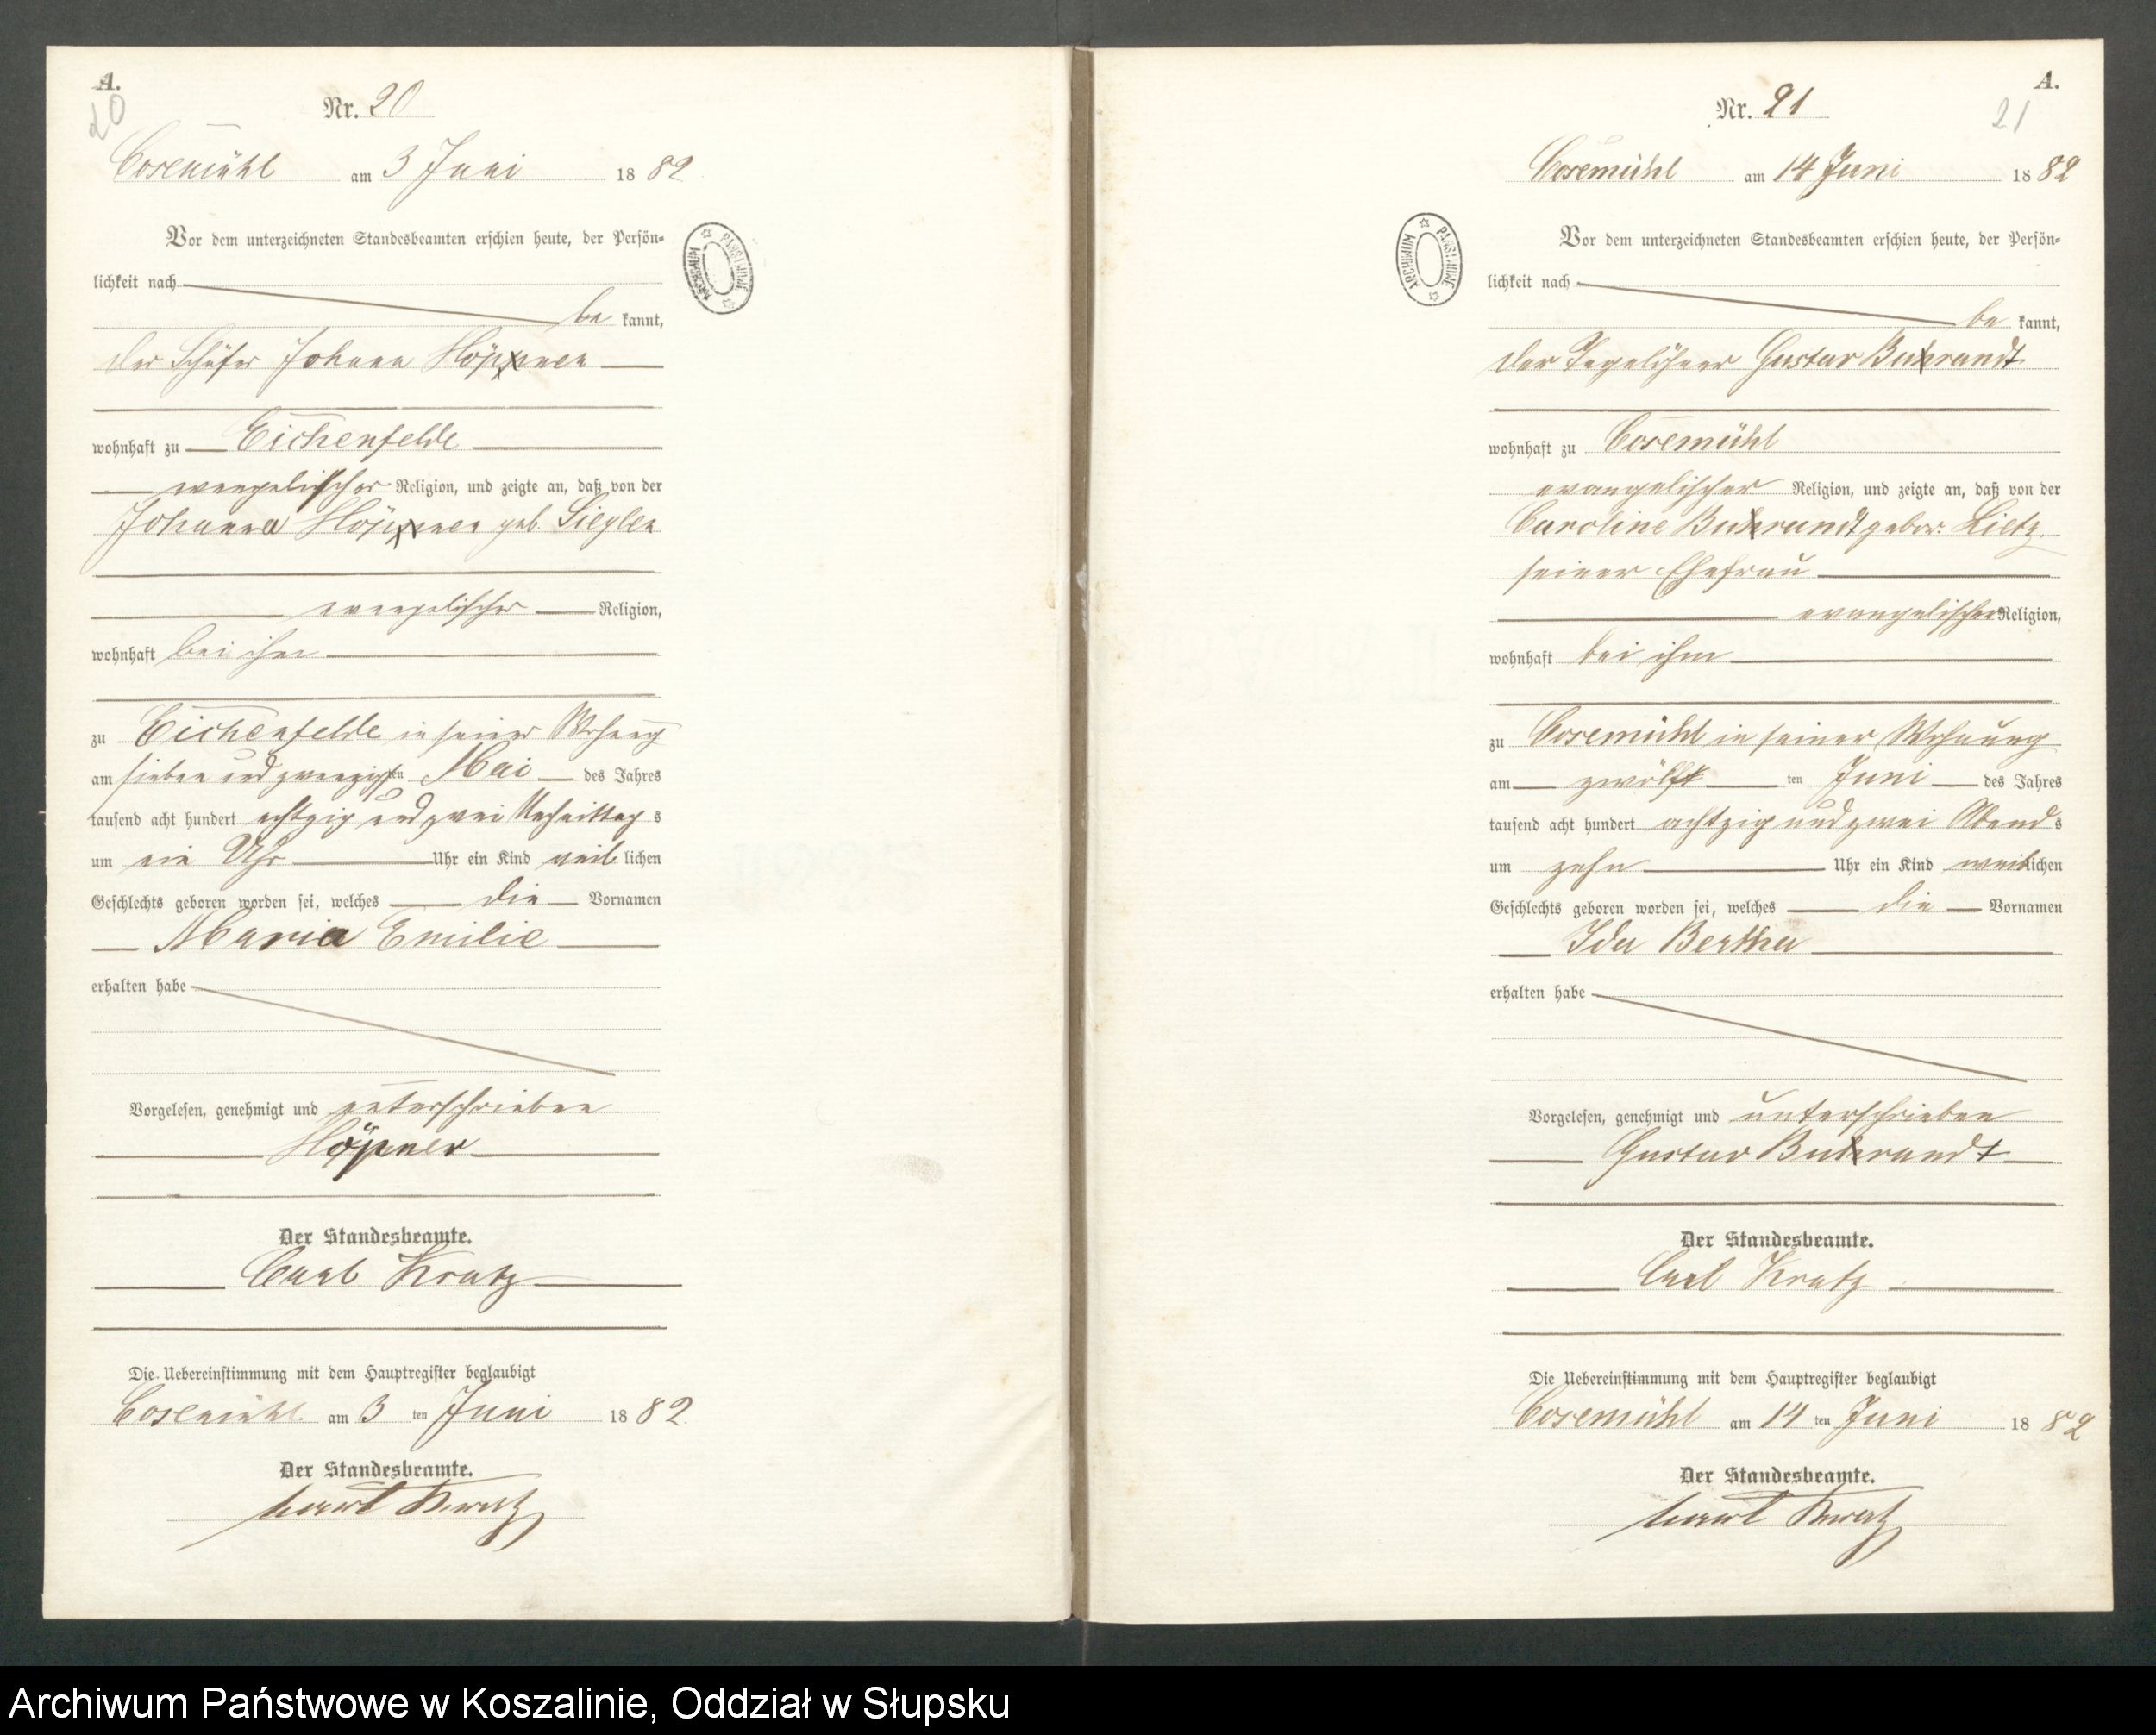 A.
20
Nr. 20
Cosemühl am 3 Juni 1882
Vor dem unterzeichneten Standesbeamten erschien heute, der Persön-
lichkeit nach
be kannt,
der Schäfer Johann Höppner
wohnhaft zu Eichenfelde
evangelischer Religion, und zeigte an, daß von der
Johanna Höppner geb. Siegler
evangelischer Religion,
wohnhaft bei ihm
zu Eichenfelde in seiner Wohnung
am sieben und zwanzigsten Mai des Jahres
tausend acht hundert achtzig und zwei Nachmittags
um ein Uhr Uhr ein Kind weiblichen
Geschlechts geboren worden sei, welches die Vornamen
Maria Emilie
erhalten habe
Vorgelesen, genehmigt und unterschrieben
Höpner
Der Standesbeamte.
Carl Kratz
Die Uebereinstimmung mit dem Hauptregister beglaubigt
Cosemühl am 3 ten Juni 1882
Der Standesbeamte.
Carl Kratz
ARCHIWUM PAŃSTWOWE
A.
21
Nr. 21
Cosemühl am 14 Juni 1882
Vor dem unterzeichneten Standesbeamten erschien heute, der Persön-
lichkeit nach
be kannt,
der Tagelöhner Gustav
wohnhaft zu Cosemühl
evangelischer Religion, und zeigte an, daß von der
Caroline gebor. Lietz
seiner Ehefrau
evangelischer Religion,
wohnhaft bei ihm
zu Cosemühl in seiner Wohnung
am zwölf ten Juni des Jahres
tausend acht hundert achtzig und zwei Abends
um zehn Uhr ein Kind weiblichen
Geschlechts geboren worden sei, welches die Vornamen
Ida Bertha
erhalten habe
Vorgelesen, genehmigt und unterschrieben
Gustav
Der Standesbeamte.
Carl Kratz
Die Uebereinstimmung mit dem Hauptregister beglaubigt
Cosemühl am 14 ten Juni 1882
Der Standesbeamte.
Carl Kratz
ARCHIWUM PAŃSTWOWE
Archiwum Państwowe w Koszalinie, Oddział w Słupsku